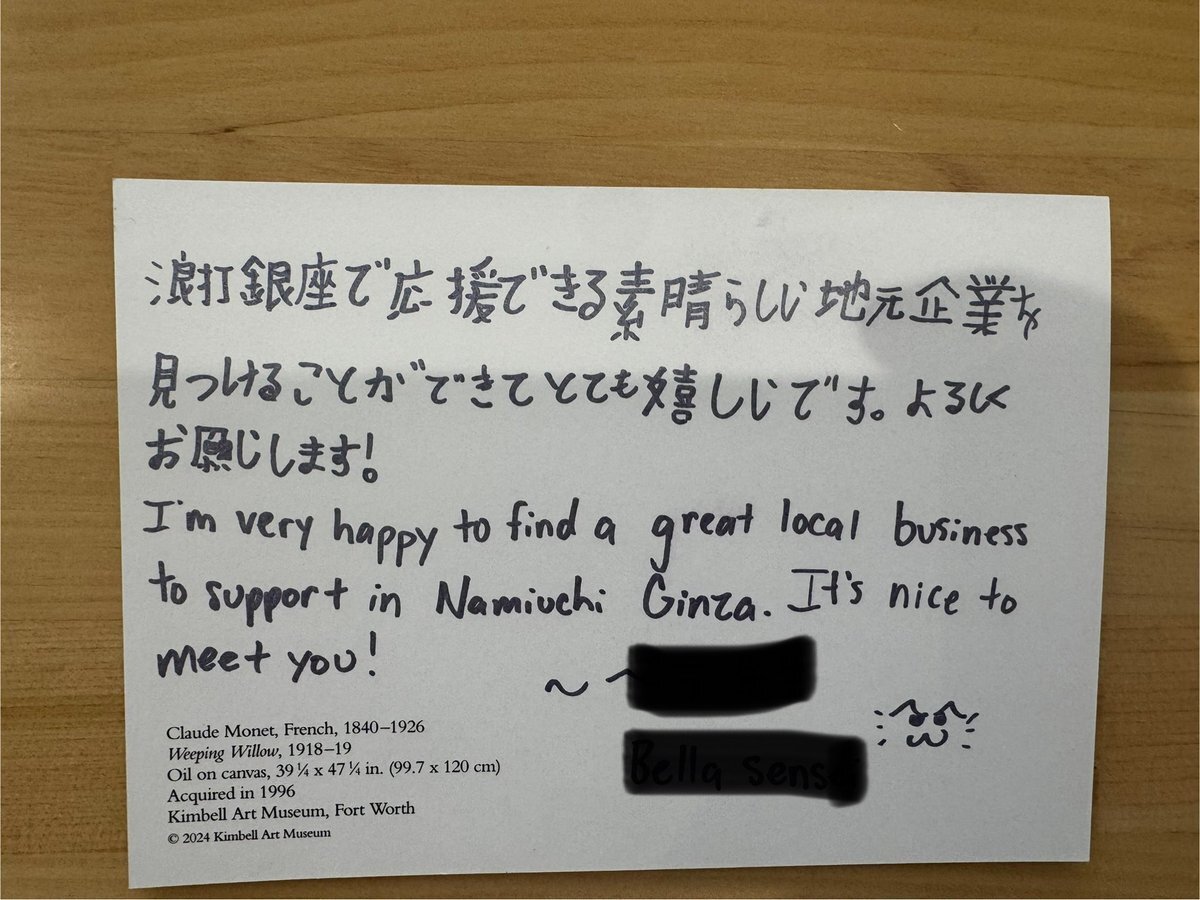 浪打銀座で応援できる素晴らしい地元企業を
見つけることができてとても嬉しいです。よろしく
お願いします!
I'm very happy to find a great local business
to support in Namiuchi Ginza. It's nice to
meet you!
Claude Monet, French, 1840–1926
Weeping Willow, 1918–19
Oil on canvas, 39 ¼ x 47 ¼ in. (99.7 x 120 cm)
Acquired in 1996
Kimbell Art Museum, Fort Worth
© 2024 Kimbell Art Museum